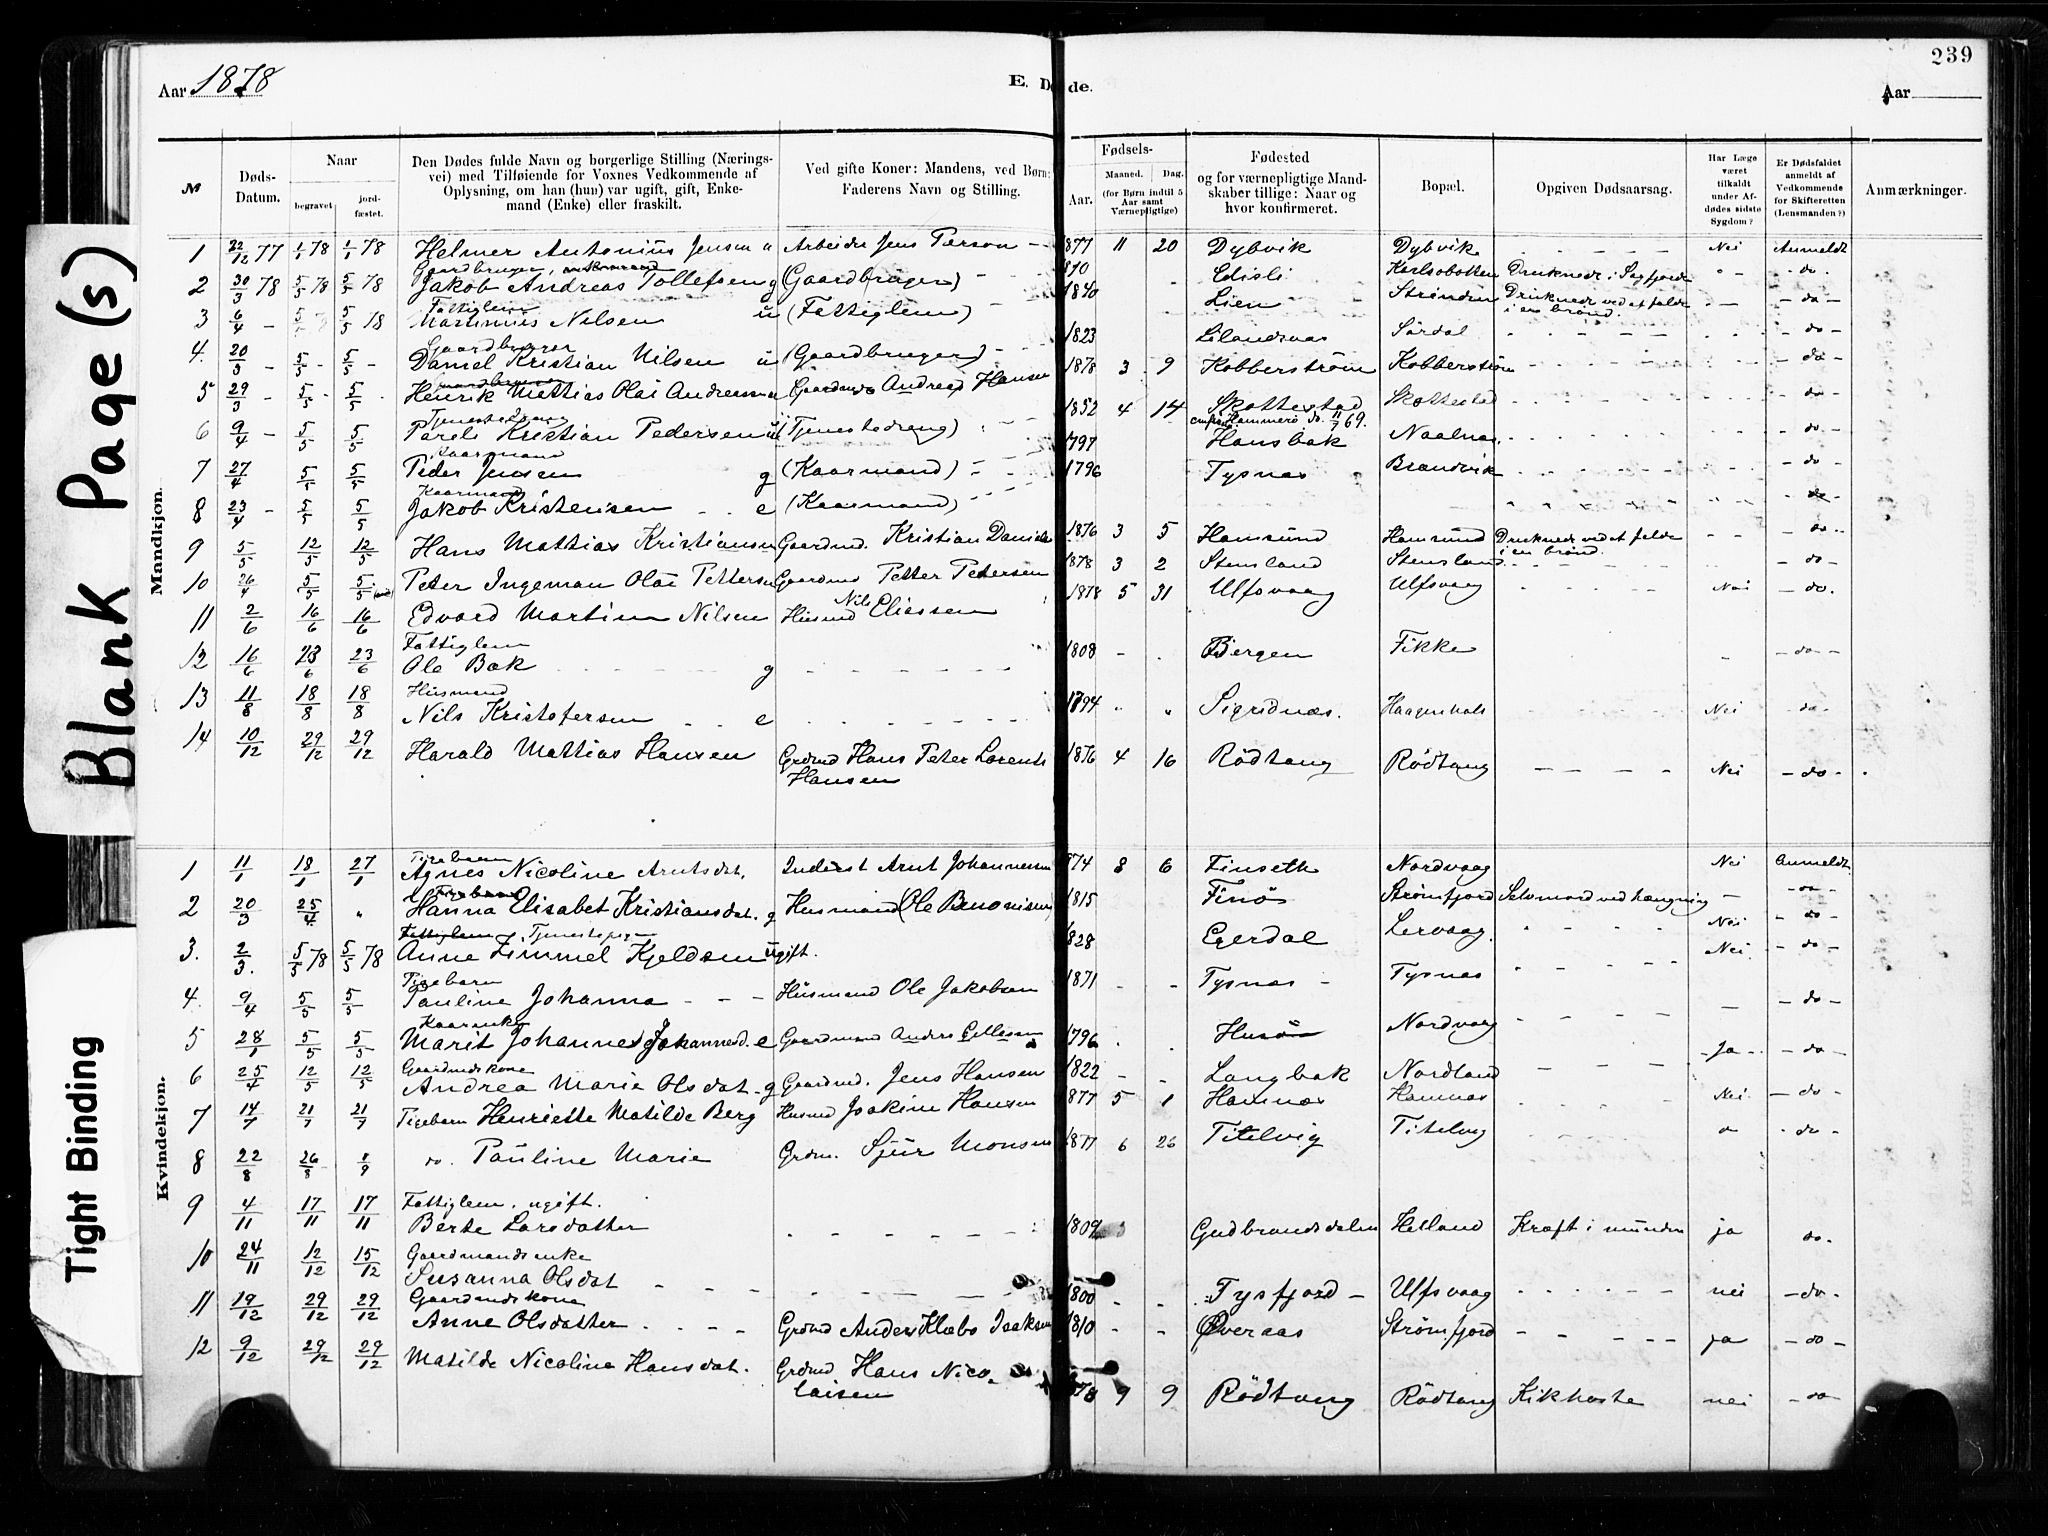 239
Aar 1878
E. Døde.
Aar
Blank Page (s)
Tight Binding
№
Døds-Datum.
Naar
begravet
jord-fæstet.
Den Dødes fulde Navn og borgerlige Stilling (Nærings-
vei) med Tilføiende for Voxnes Vedkommende af
Oplysning, om han (hun) var ugift, gift, Enke-
mand (Enke) eller fraskilt.
Ved gifte Koner: Mandens, ved Børn:
Faderens Navn og Stilling.
Fødsels-
Aar.
Maaned.
Dag.
(for Børn indtil 5
Aar samt
Værnepligtige)
Fødested
og for værnepligtige Mand-
skaber tillige: Naar og
hvor konfirmeret.
Bopæl.
Opgiven Dødsaarsag.
Har Læge
været
tilkaldt
under Af-
dødes sidste
Sygdom?
Er Dødsfaldet
anmeldt af
Vedkommende
for Skifteretten
(Lensmanden?)
Anmærkninger.
Mandkjøn.
1 22/12 77 1/1 78 1/1 78 Helmer Antonius Jensen u Arbeider Jens Person 1877 11 20 Dybvik Dybvik Nei Anmeldt
Gaardbruger,
2 30/3 78 5/5 78 5/5 78 Jakob Andreas Tollefsen g (Gaardbruger) Edisli Karlsobotten Druknede i Sagfjord do.
Fattiglem
3 6/4 5/5 5/5 18 Martinus Nilsen u (Fattiglem) 1840 Lien Strinden Druknede ved at falde i en brønd. do
Gaardbruger
4. 20/3 5/5 5/5 Daniel Kristian Nilsen u (Gaardbruger) 1823 Lilandsvas Sørdal do
5 29/3 5/5 5/5 Henrik Mathias Olai Andreassen Gaardmd Andreas Hansen 1878 3 9 Kobberstrøm Kobberstrøm do
Tjenestedreng
6 9/4 5/5 5/5 Parels Kristian Pedersen u (Tjenestedreng) 1852 4 14 Skottestad Skottestad do
Hammerø do. 11/7 69.
Kaarmand
7 27/4 5/5 5/5 Peder Jensen g (Kaarmand) 1797 Hansbak Naalnes do
Kaarmand
8 23/4 5/5 5/5 Jakob Kristensen e (Kaarmand) 1796 Tysnes Brændvik do
9 5/5 12/5 12/5 Hans Mathias Kristiansen Gaardmd. Kristian Daniels 1876 3 5 Hamsund Hamsund Druknede ved at falde i en brønd. do
10 26/4 5/5 5/5 Peter Ingeman Olai Pettersen Gaardmd Petter Petersen 1878 3 2 Stensland Stensland do
11 2/6 16/6 16/6 Edvard Martin Nilsen Husmd Nils Eliessen 1878 5 31 Ulfsvaag Ulfsvaag Nei do.
Fattiglem
12 16/6 23/6 23/6 Ole Bak g 1808 Bergen Fikke do
Husmand
13 11/8 18/8 18/8 Nils Kristofersen e 1794 Sigridnæs. Haagenhals Nei do
14 10/12 29/12 29/12 Harald Mathias Hansen Grdmd Hans Peter Lorents Hansen 1876 4 16 Rødtang Rødtang Nei do
Kvindekjøn.
Pigebarn
1 11/1 18/1 27/1 Agnes Nicoline Arntsdat. Inderst Arnt Johannesen 1874 8 6 Finseth Nordvaag Nei Anmeldt
2 20/3 25/4 " Hanna Elisabet Kristiansdat. g Husmand (Ole Benonisen) 1815 Finøs Strømfjord Selvmord ved hængning do
Fattiglem, Tjenestepige
3. 2/3. 5/5 78 5/5 78 Anne Fimmel Kjeldsen ugift. 1828 Egerdal Lervaag. Nei do
Pigebarn
4. 9/4 5/5 5/5 Pauline Johanna Husmand Ole Jakobsen 1871 Tysnes Tysnes Nei do
Kaarenke
5 28/1 5/5 5/5 Marit Johannesd. e Gaardmand Anders 1796 Husø Nordvaag do
Gaardmdskone
6 25/4 12/5 12/5 Andrea Marie Olsdat g Gaardmd. Jens Hansen 1822 Langbak Nordland Ja do
7 14/7 21/7 21/7 Pigebarn Henriette Matilde Berg Husmd Joakim Hansen 1877 5 1 Hamnes Hamnes Nei do
8 22/8 26/8 1/9 do. Pauline Marie Grdm. Sjur Monsen 1877 6 26 Titelvig Titelvig do
Fattiglem. ugift.
9 4/11 17/11 17/11 Berte Larsdatter 1809 Gudbrandsdalen Helland Kræft i munden ja do.
Gaardmandsenke
10 24/11 12/12 15/12 Susanna Olsdat 1800 Tysfjord Ulfsvaag nei do.
Gaardmdskone
11 19/12 29/12 29/12 Anne Olsdatter Grdmd Anders Klæbo Isaksen 1810 Øveraas Strømfjord ja do
12 9/12 29/12 29/12 Matilde Nicoline Hansdat. Grdmd Hans Nicolaisen 9 9 Rødtang Rødtang Kikhoste nei do